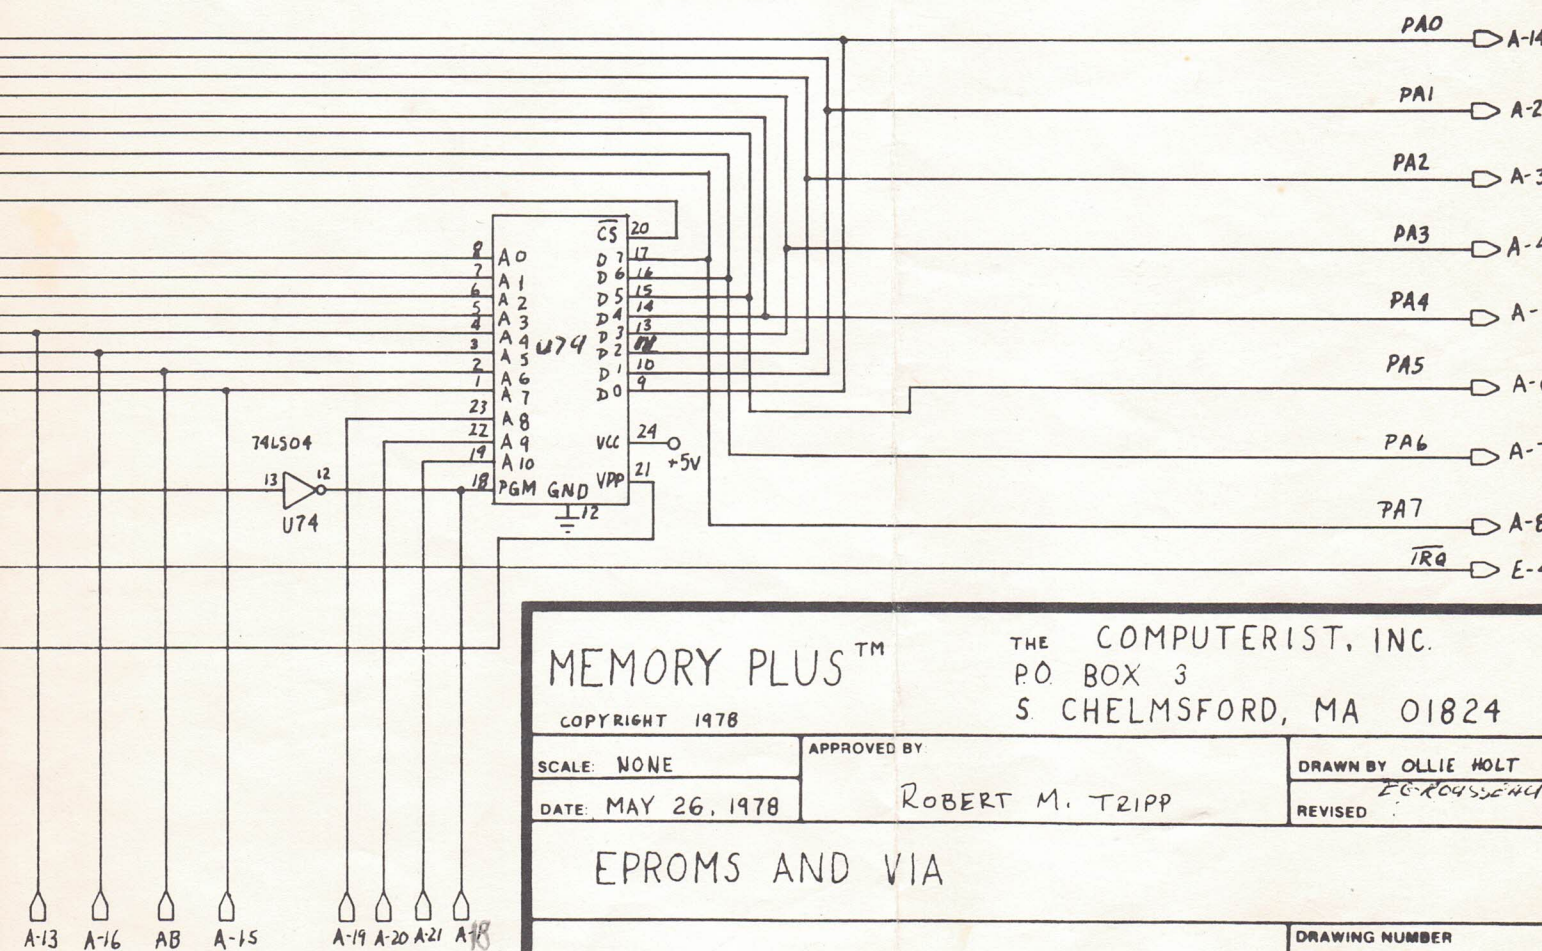 PA0
A-14
PA1
A-2
PA2
A-3
PA3
A-4
PA4
A-
PA5
A-6
PA6
A-7
PA7
A-8
IRQ
E-4
8 A0
7 A1
6 A2
5 A3
4 A4
3 A5
2 A6
1 A7
23 A8
22 A9
19 A10
18 PGM GND
12
CS 20
D7 17
D6 16
D5 15
D4 14
D3 13
D2
D1 10
D0 9
VCC 24
+5V
VPP 21
U79
74LS04
13 12
U74
A-13 A-16 AB A-15 A-19 A-20 A-21 A-18
MEMORY PLUS™
COPYRIGHT 1978
THE COMPUTERIST, INC.
P.O. BOX 3
S. CHELMSFORD, MA 01824
SCALE: NONE
DATE: MAY 26, 1978
APPROVED BY
ROBERT M. TRIPP
DRAWN BY OLLIE HOLT
REVISED
EPROMS AND VIA
DRAWING NUMBER